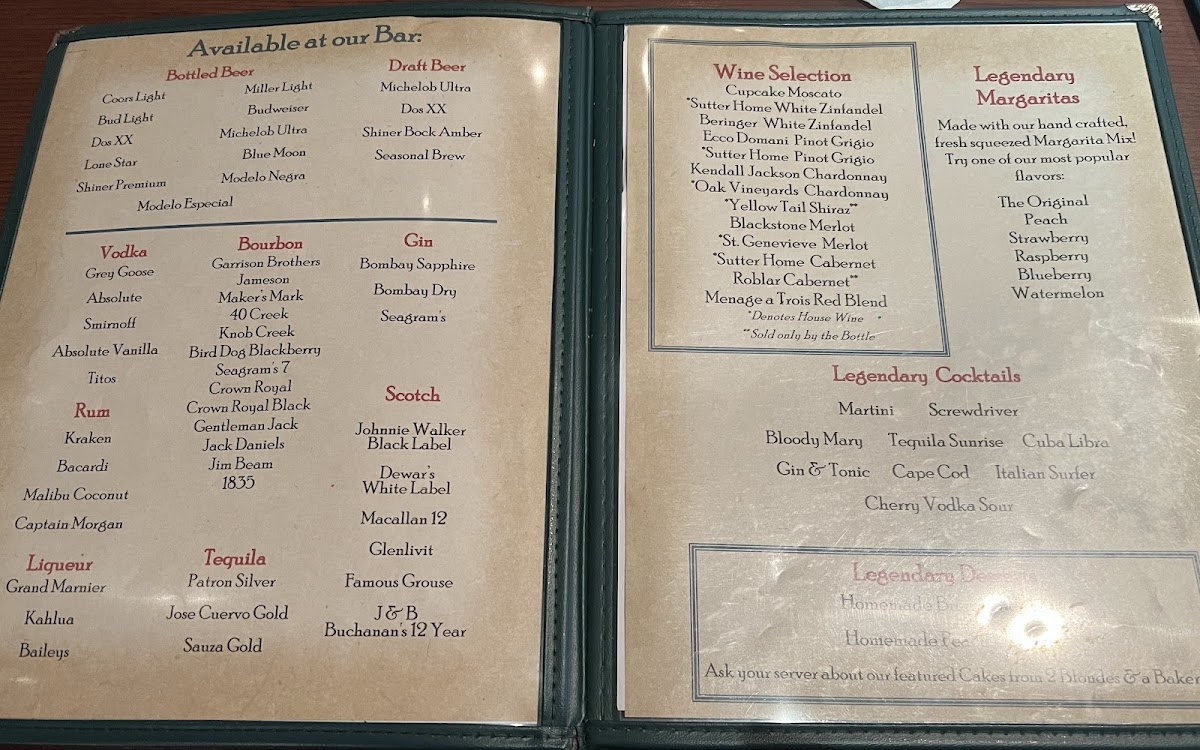 Available at our Bar:
Bottled Beer
Coors Light
Miller Light
Bud Light
Budweiser
Dos XX
Michelob Ultra
Lone Star
Blue Moon
Shiner Premium
Modelo Negra
Modelo Especial
Draft Beer
Michelob Ultra
Dos XX
Shiner Bock Amber
Seasonal Brew
Vodka
Grey Goose
Absolute
Smirnoff
Absolute Vanilla
Titos
Rum
Kraken
Bacardi
Malibu Coconut
Captain Morgan
Liqueur
Grand Marnier
Kahlua
Baileys
Bourbon
Garrison Brothers
Jameson
Maker's Mark
40 Creek
Knob Creek
Bird Dog Blackberry
Seagram's 7
Crown Royal
Crown Royal Black
Gentleman Jack
Jack Daniels
Jim Beam
1835
Tequila
Patron Silver
Jose Cuervo Gold
Sauza Gold
Gin
Bombay Sapphire
Bombay Dry
Seagram's
Scotch
Johnnie Walker
Black Label
Dewar's
White Label
Macallan 12
Glenlivit
Famous Grouse
J & B
Buchanan's 12 Year
Wine Selection
Cupcake Moscato
*Sutter Home White Zinfandel
Beringer White Zinfandel
Ecco Domani Pinot Grigio
*Sutter Home Pinot Grigio
Kendall Jackson Chardonnay
*Oak Vineyards Chardonnay
*Yellow Tail Shiraz**
Blackstone Merlot
*St. Genevieve Merlot
*Sutter Home Cabernet
Roblar Cabernet**
Menage a Trois Red Blend
*Denotes House Wine *
**Sold only by the Bottle
Legendary
Margaritas
Made with our hand crafted,
fresh squeezed Margarita Mix!
Try one of our most popular
flavors:
The Original
Peach
Strawberry
Raspberry
Blueberry
Watermelon
Legendary Cocktails
Martini Screwdriver
Bloody Mary Tequila Sunrise Cuba Libra
Gin & Tonic Cape Cod Italian Surfer
Cherry Vodka Sour
Legendary
Homemade
Homemade
Ask your server about our featured Cakes from 2 Blondes & a Baker